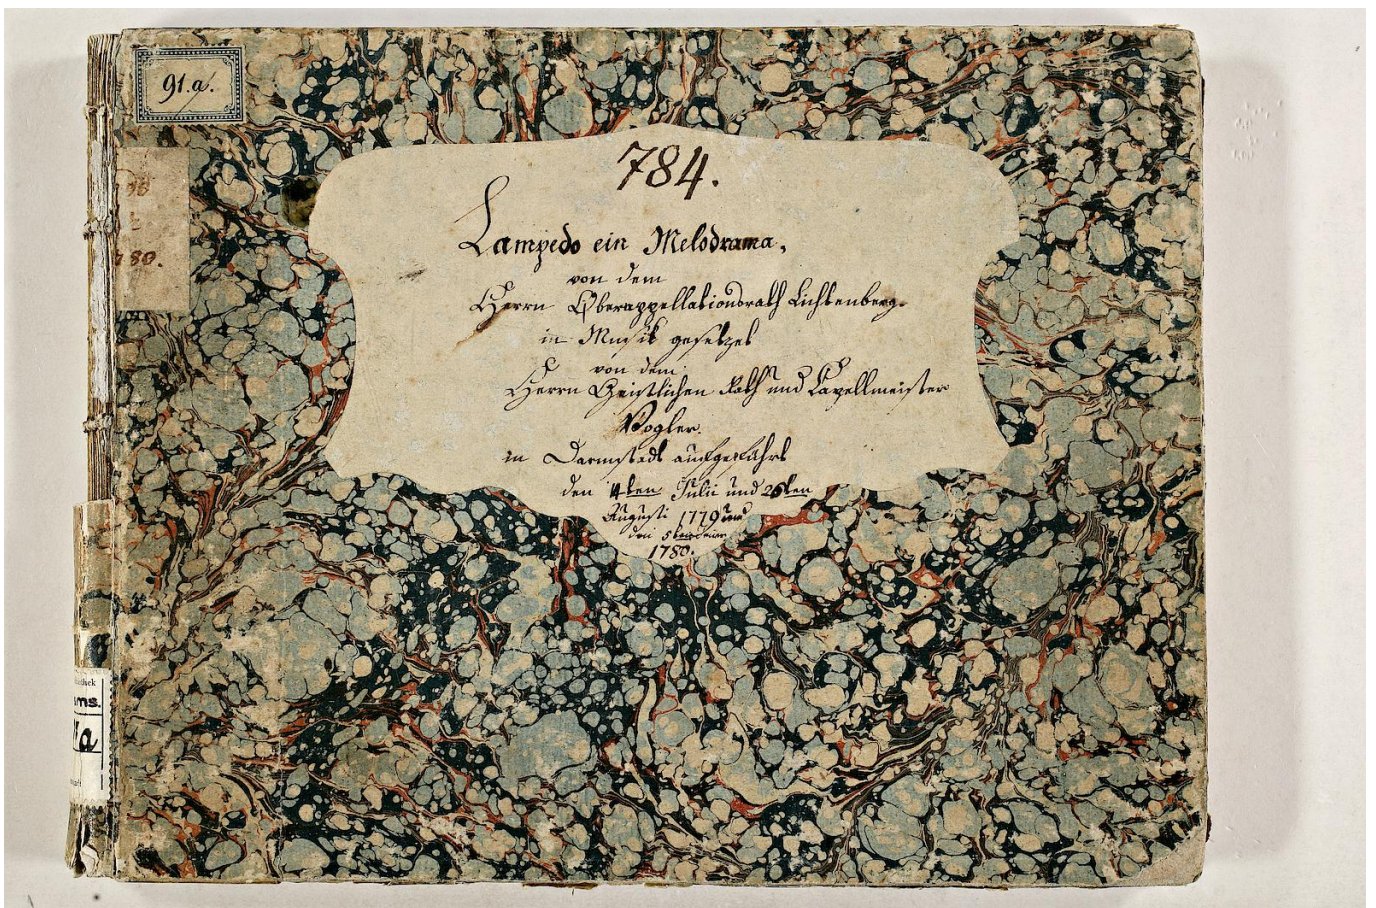 91.a.
80.
784.
Lampedo ein Melodrama,
von dem
Herrn Oberappellationsrath Lichtenberg.
in Musik gesetzet
von dem
Herrn Geistlichen Rath und Capellmeister
Vogler.
in Darmstadt aufgeführt
den 4ten Julii und 26ten
Augusti 1779 und
den 5ten
1780.
ms.
a